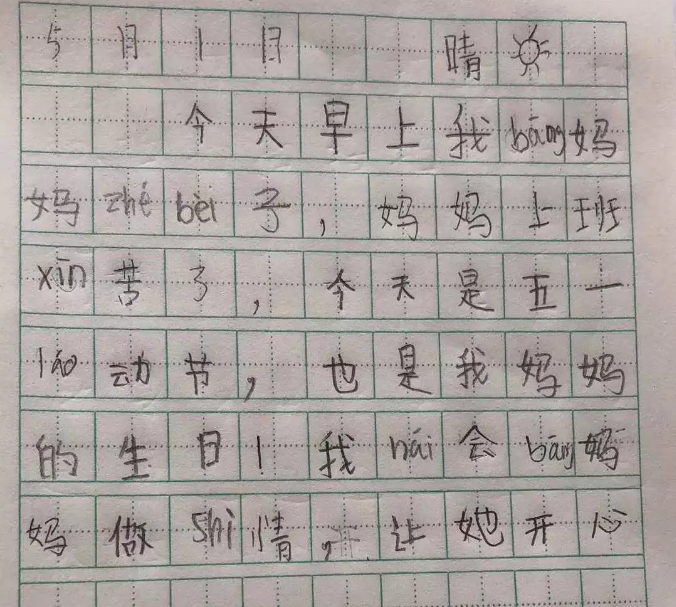 5月1日 晴
今天早上我bāng妈
妈zhé bèi子，妈妈上班
xīn苦了，今天是五一
láo动节，也是我妈妈
的生日！我hái会bāng妈
妈做shì情，让她开心